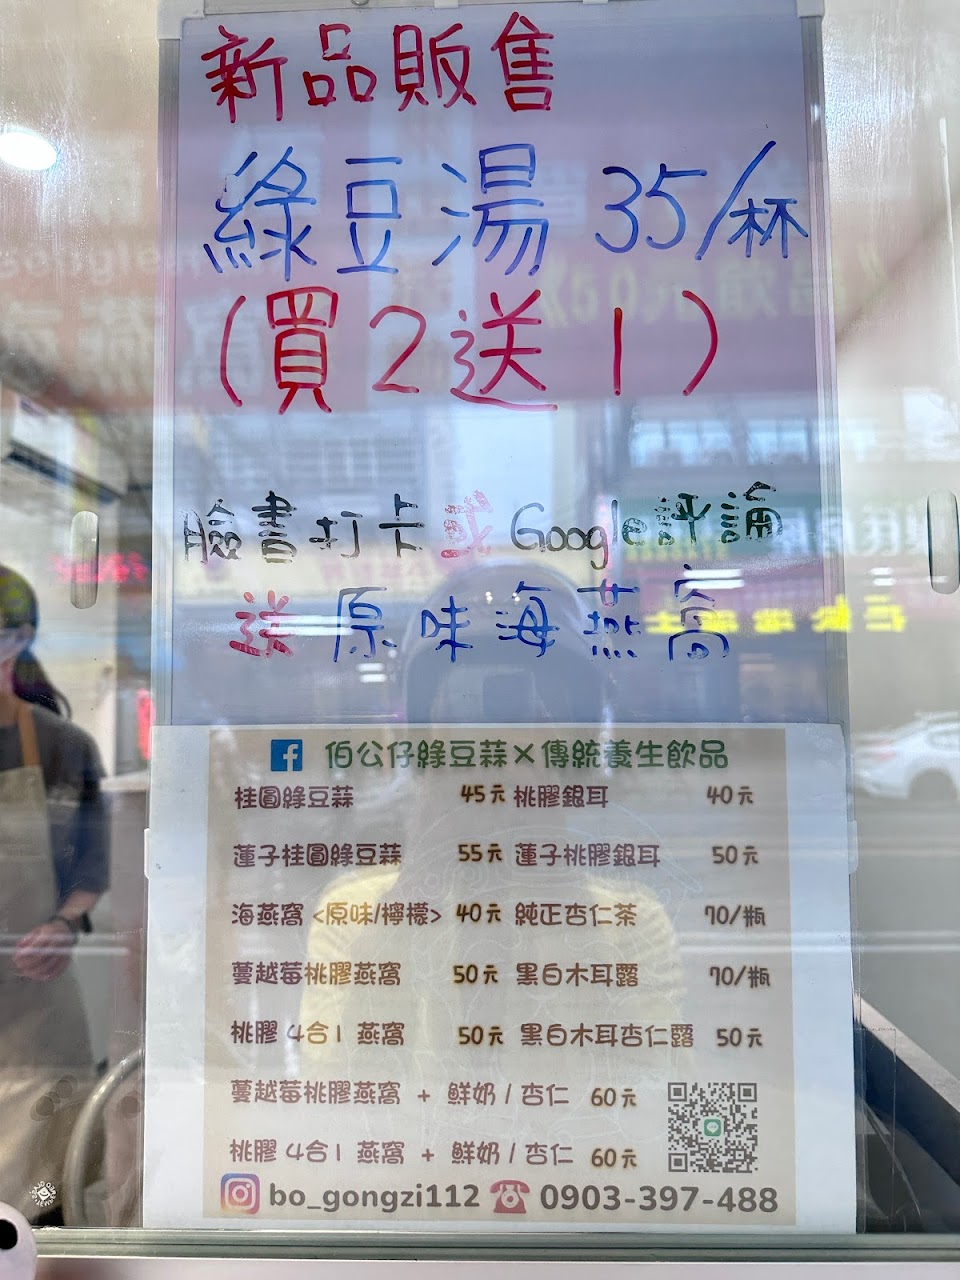 新品販售
綠豆湯 35/杯
(買2送1)
臉書打卡或Google評論
送原味海燕窩
伯公仔綠豆蒜×傳統養生飲品
桂圓綠豆蒜 45元 桃膠銀耳 40元
蓮子桂圓綠豆蒜 55元 蓮子桃膠銀耳 50元
海燕窩 <原味/檸檬> 40元 純正杏仁茶 70/瓶
蔓越莓桃膠燕窩 50元 黑白木耳露 70/瓶
桃膠 4合1 燕窩 50元 黑白木耳杏仁露 50元
蔓越莓桃膠燕窩 + 鮮奶 / 杏仁 60元
桃膠 4合1 燕窩 + 鮮奶 / 杏仁 60元
bo_gongzi112 0903-397-488